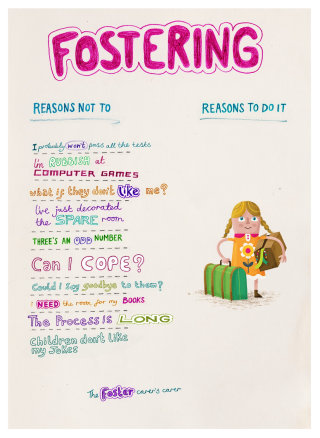 FOSTERING
REASONS NOT TO
REASONS TO DO IT
I probably won't pass all the tests
I'm RUBBISH at
COMPUTER GAMES
what if they don't like me?
We've just decorated
the SPARE room
THREE'S AN ODD NUMBER
Can I COPE?
Could I say goodbye to them?
I NEED the room for my BOOKS
The Process is LONG
Children don't like
my jokes
The Foster carer's carer